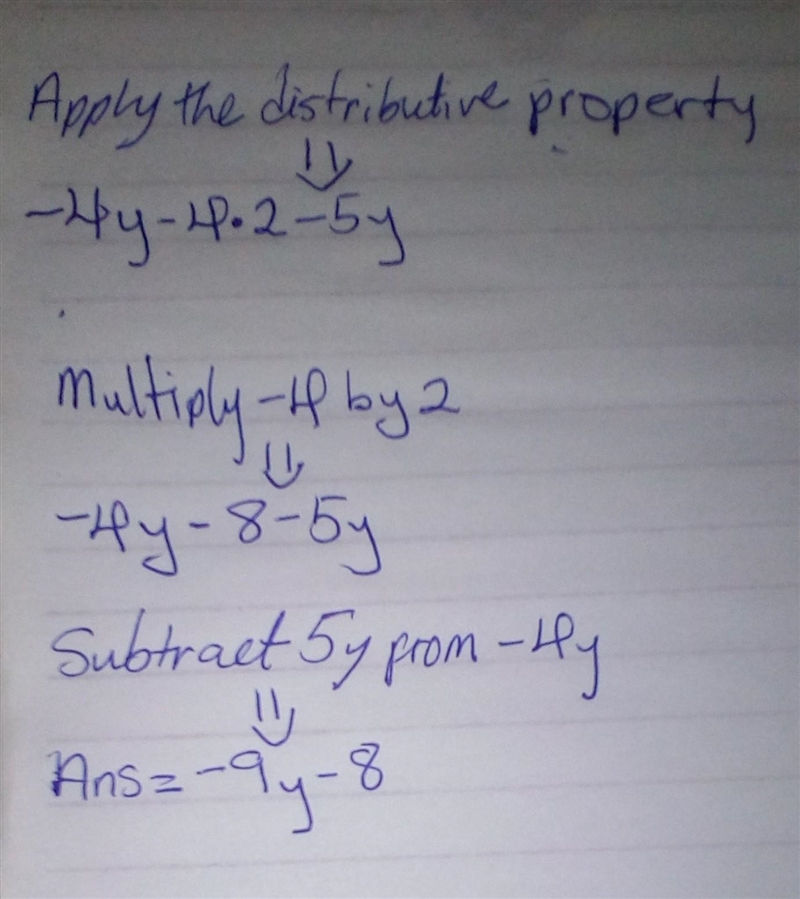 Apply the distributive property
⇓
-4y-4•2-5y
Multiply -4 by 2
⇓
-4y-8-5y
Subtract 5y from -4y
⇓
Ans = -9y-8